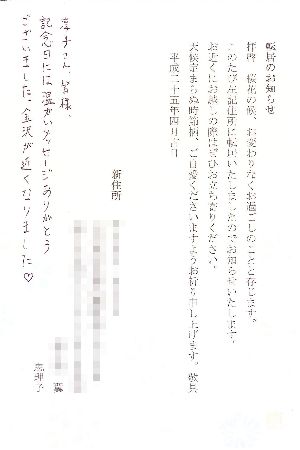 転居のお知らせ
拝啓　桜花の候、お変わりなくお過ごしのことと存じます。
このたび左記住所に転居いたしましたのでお知らせいたします。
お近くにお越しの際はぜひお立ちよりください。
天候定まらぬ時節柄、ご自愛くださいますようお祈り申し上げます。敬具
平成二十五年四月吉日
新住所
恵理子
孝子さん　皆様
記念日には温かいメッセージありがとう
ございました。金沢が近くなりました♡